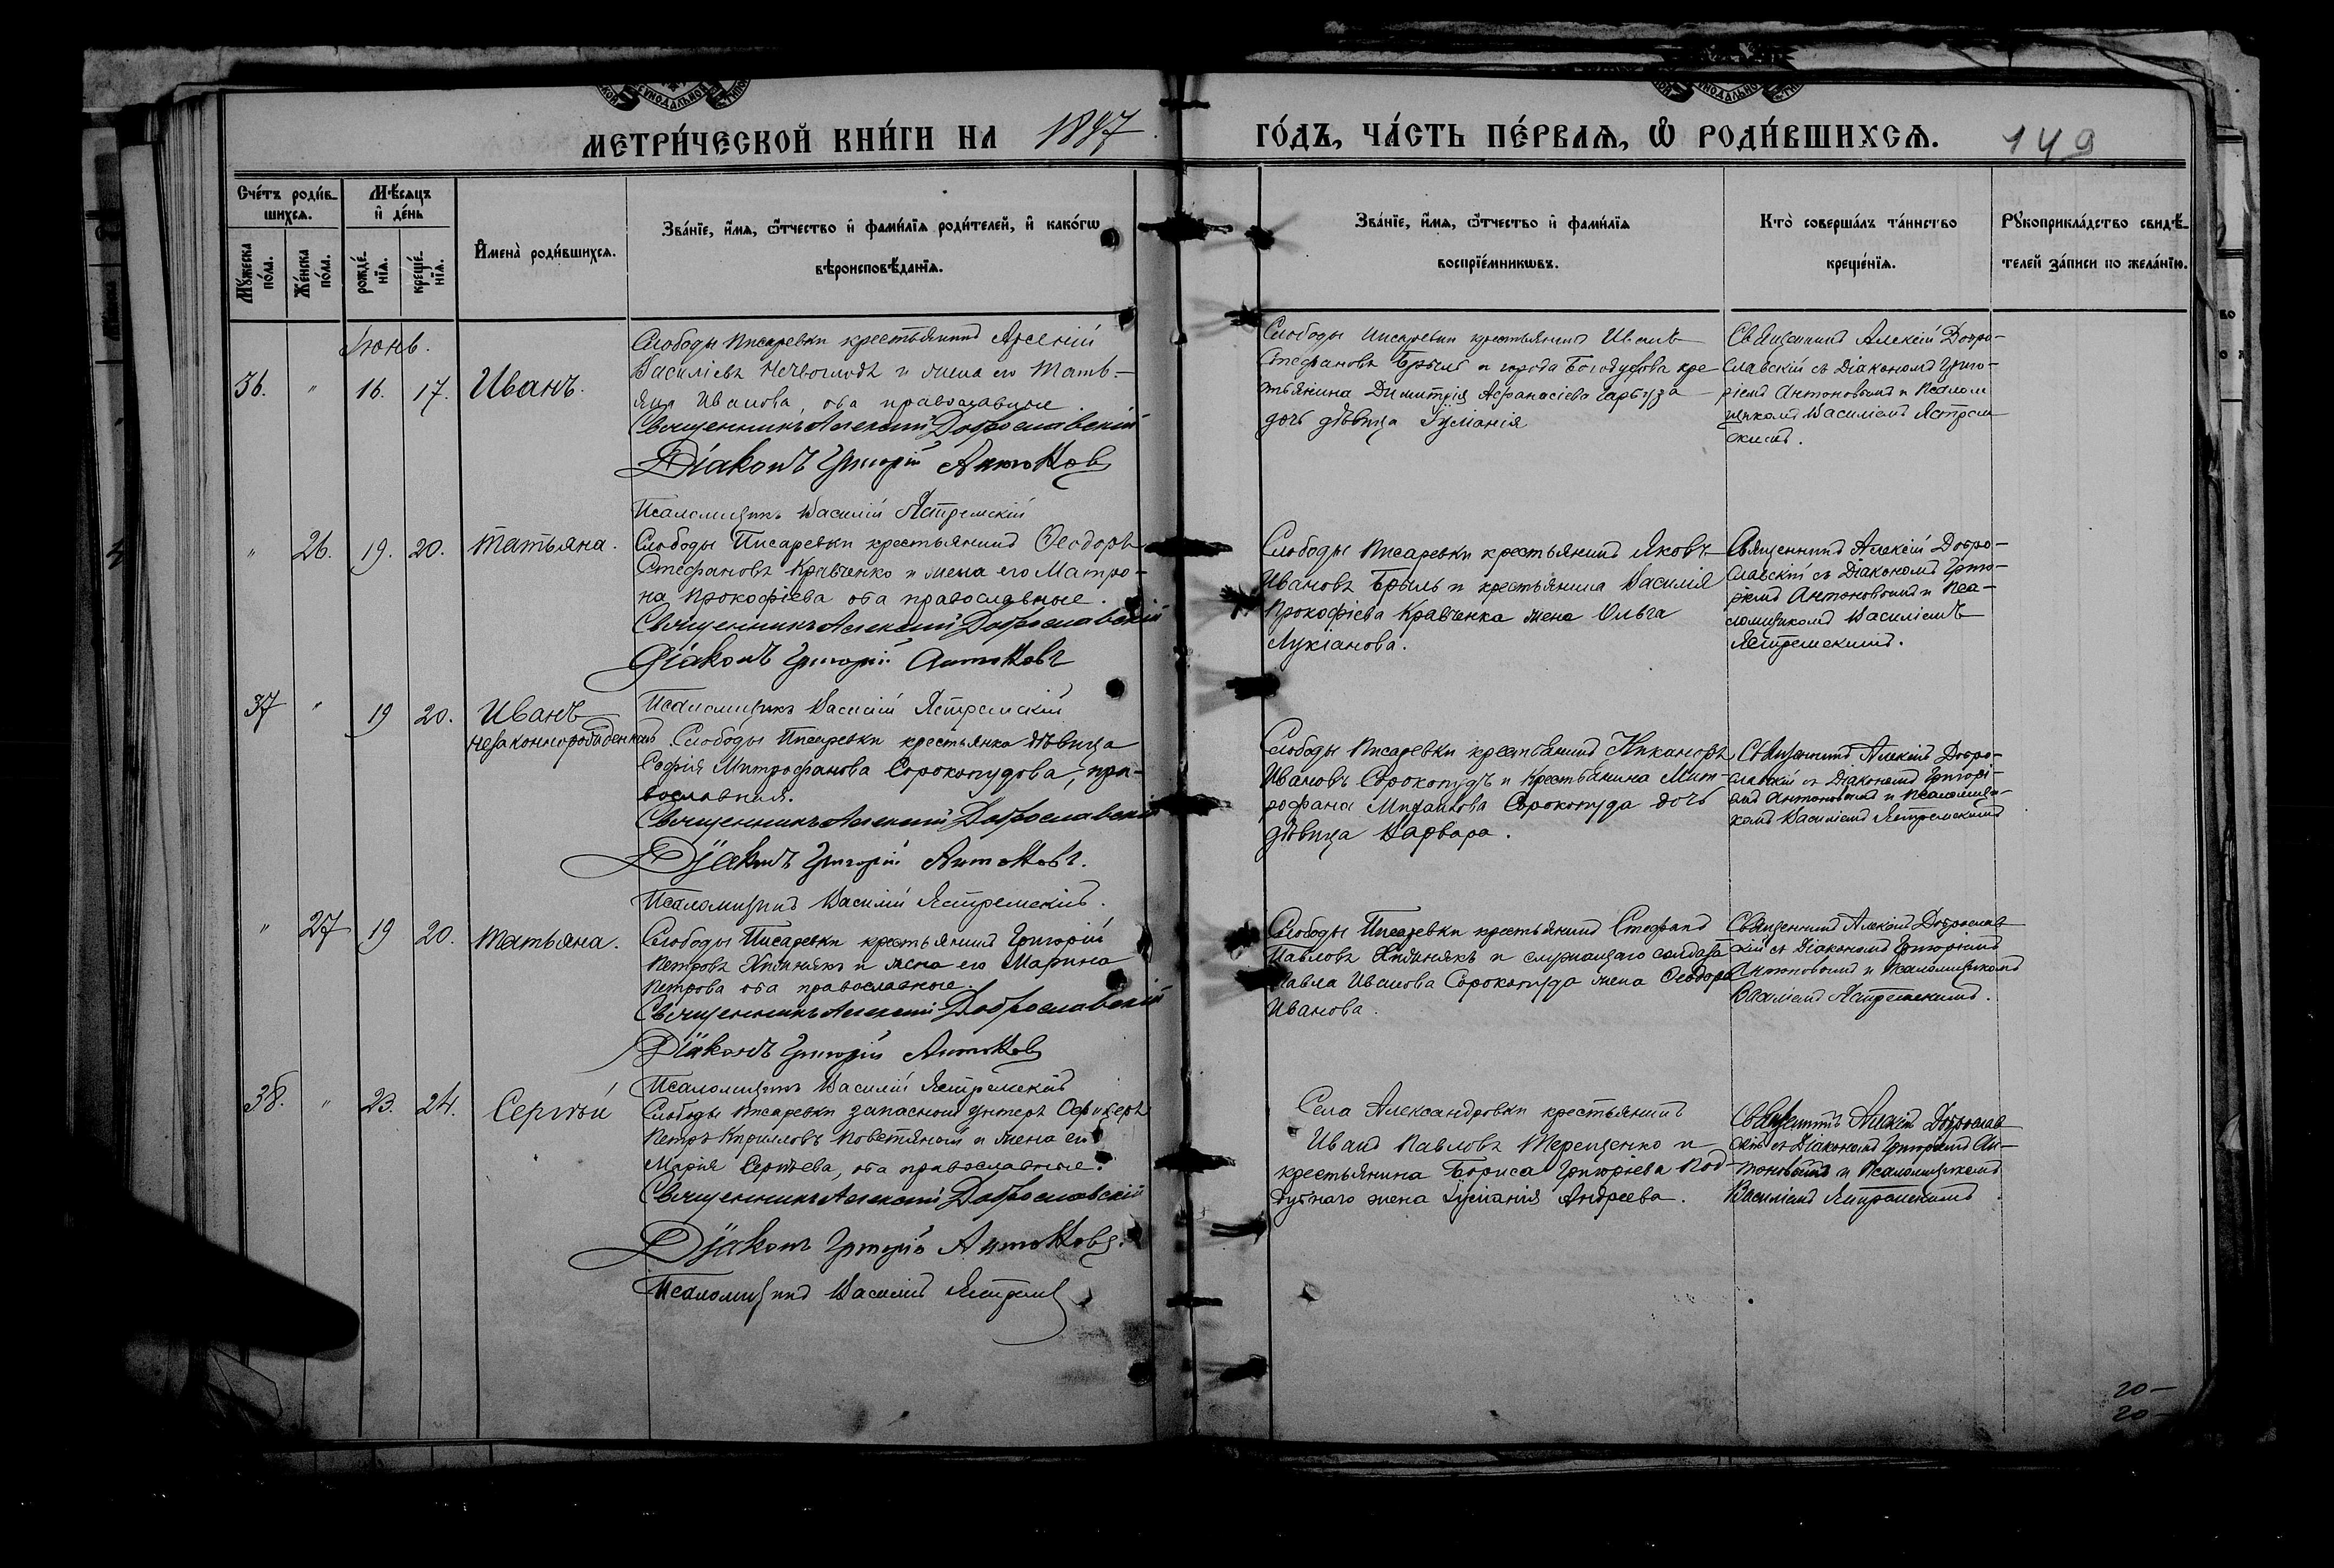 МЕТРИ́ЧЕСКОЙ КНИ́ГИ НА 1897 ГО́ДЪ, ЧА́СТЬ ПЕ́РВАѦ, Ѡ҆ РОДИ́ВШИХСѦ. 149
Сче́тъ роди́в-
шихсѧ.
Мꙋ́жеска по́ла.
Же́нска по́ла.
Мѣ́сѧцъ и҆ де́нь
рожде́нїѧ.
креще́нїѧ.
И҆мена̀ роди́вшихсѧ.
Зва́нїе, и҆́мѧ, ѻ҆́тчество и҆ фами́лїѧ роди́телей, и҆ како́гѡ
вѣроисповѣ́данїѧ.
Зва́нїе, и҆́мѧ, ѻ҆́тчество и҆ фами́лїѧ
воспрїе́мникѡвъ.
Кто̀ соверша́лъ та́инство
креще́нїѧ.
Рꙋкоприкла́дство свидѣ́-
телей за́писи по жела́нїю.
Іюнь.
36. " 16. 17. Иванъ.
Слободы Писаревки крестьянинъ Арсеній
Василіевъ Нечволодъ и жена его Тать-
яна Иванова, оба православные.
Священникъ Алексій Доброславскій
Діаконъ Григорій Антоновъ
Псаломщикъ Василій Ястремскій
Слободы Писаревки крестьянинъ Иванъ
Стефановъ Брыль и города Богодухова кре-
стьянина Димитрія Афанасіева Гарбуза
дочь дѣвица Іуліанія
Священникъ Алексій Добро-
славскій съ Діакономъ Григо-
ріемъ Антоновымъ и Псалом-
щикомъ Василіемъ Ястрем-
скимъ.
" 26. 19. 20. Татьяна.
Слободы Писаревки крестьянинъ Ѳеодоръ
Стефановъ Кравченко и жена его Матро-
на Прокофіева оба православные.
Священникъ Алексій Доброславскій
Діаконъ Григорій Антоновъ
Псаломщикъ Василій Ястремскій
Слободы Писаревки крестьянинъ Яковъ
Ивановъ Брыль и крестьянина Василія
Прокофіева Кравченка жена Ольга
Лукіанова.
Священникъ Алексій Добро-
славскій съ Діакономъ Григо-
ріемъ Антоновымъ и Пса-
ломщикомъ Василіемъ
Ястремскимъ.
37 " 19 20. Иванъ
незаконнорожденный
Слободы Писаревки крестьянка дѣвица
Софія Митрофанова Сорокопудова, пра-
вославная.
Священникъ Алексій Доброславскій
Діаконъ Григорій Антоновъ.
Псаломщикъ Василій Ястремскій.
Слободы Писаревки крестьянинъ Никаноръ
Ивановъ Сорокопудъ и крестьянина Мит-
рофана Михайлова Сорокопуда дочь
дѣвица Варвара.
Священникъ Алексій Добро-
славскій съ Діакономъ Григорі-
емъ Антоновымъ и Псаломщи-
комъ Василіемъ Ястремскимъ
" 27 19 20. Татьяна.
Слободы Писаревки крестьянинъ Григорій
Петровъ Хижнякъ и жена его Марина
Петрова оба православные.
Священникъ Алексій Доброславскій
Діаконъ Григорій Антоновъ
Псаломщикъ Василій Ястремскій
Слободы Писаревки крестьянинъ Стефанъ
Павловъ Хижнякъ и служащаго солдата
Павла Иванова Сорокопуда жена Ѳеодора
Иванова.
Священникъ Алексій Доброслав-
скій съ Діакономъ Григоріемъ
Антоновымъ и Псаломщикомъ
Василіемъ Ястремскимъ.
38. " 23. 24. Сергѣй
Слободы Писаревки запасный унтеръ Офицеръ
Петръ Кирилловъ и жена его
Марія Сергѣева, оба православные.
Священникъ Алексій Доброславскій
Діаконъ Григорій Антоновъ.
Псаломщикъ Василій Ястрем
Села Александровки крестьянинъ
Иванъ Павловъ Терещенко и
крестьянина Бориса Григоріева Под-
дубнаго жена Іуліанія Андреева.
Священникъ Алексій Доброслав-
скій съ Діакономъ Григоріемъ Ан-
тоновымъ и Псаломщикомъ
Василіемъ Ястремскимъ
20 —
20 —